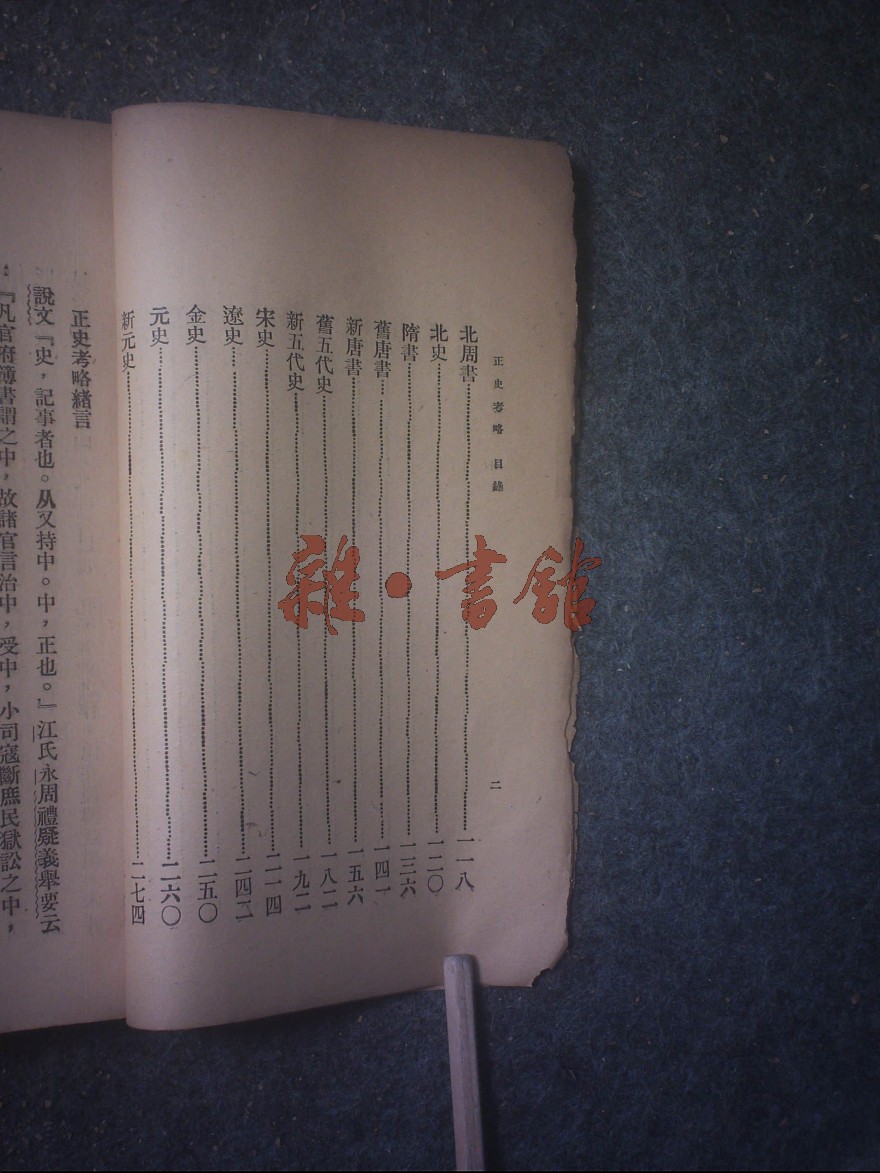 正史考略 目錄 二
北周書……一一八
北史……一二〇
隋書……一三六
舊唐書……一四一
新唐書……一五六
舊五代史……一八二
新五代史……一九二
宋史……二一四
遼史……二四二
金史……二五〇
元史……二六〇
新元史……二七四
正史考略緒言
說文『史，記事者也。从又持中。中，正也。』江氏永周禮疑義舉要云
：『凡官府簿書謂之中，故諸官言治中，受中，小司寇斷庶民獄訟之中，
雜·書館